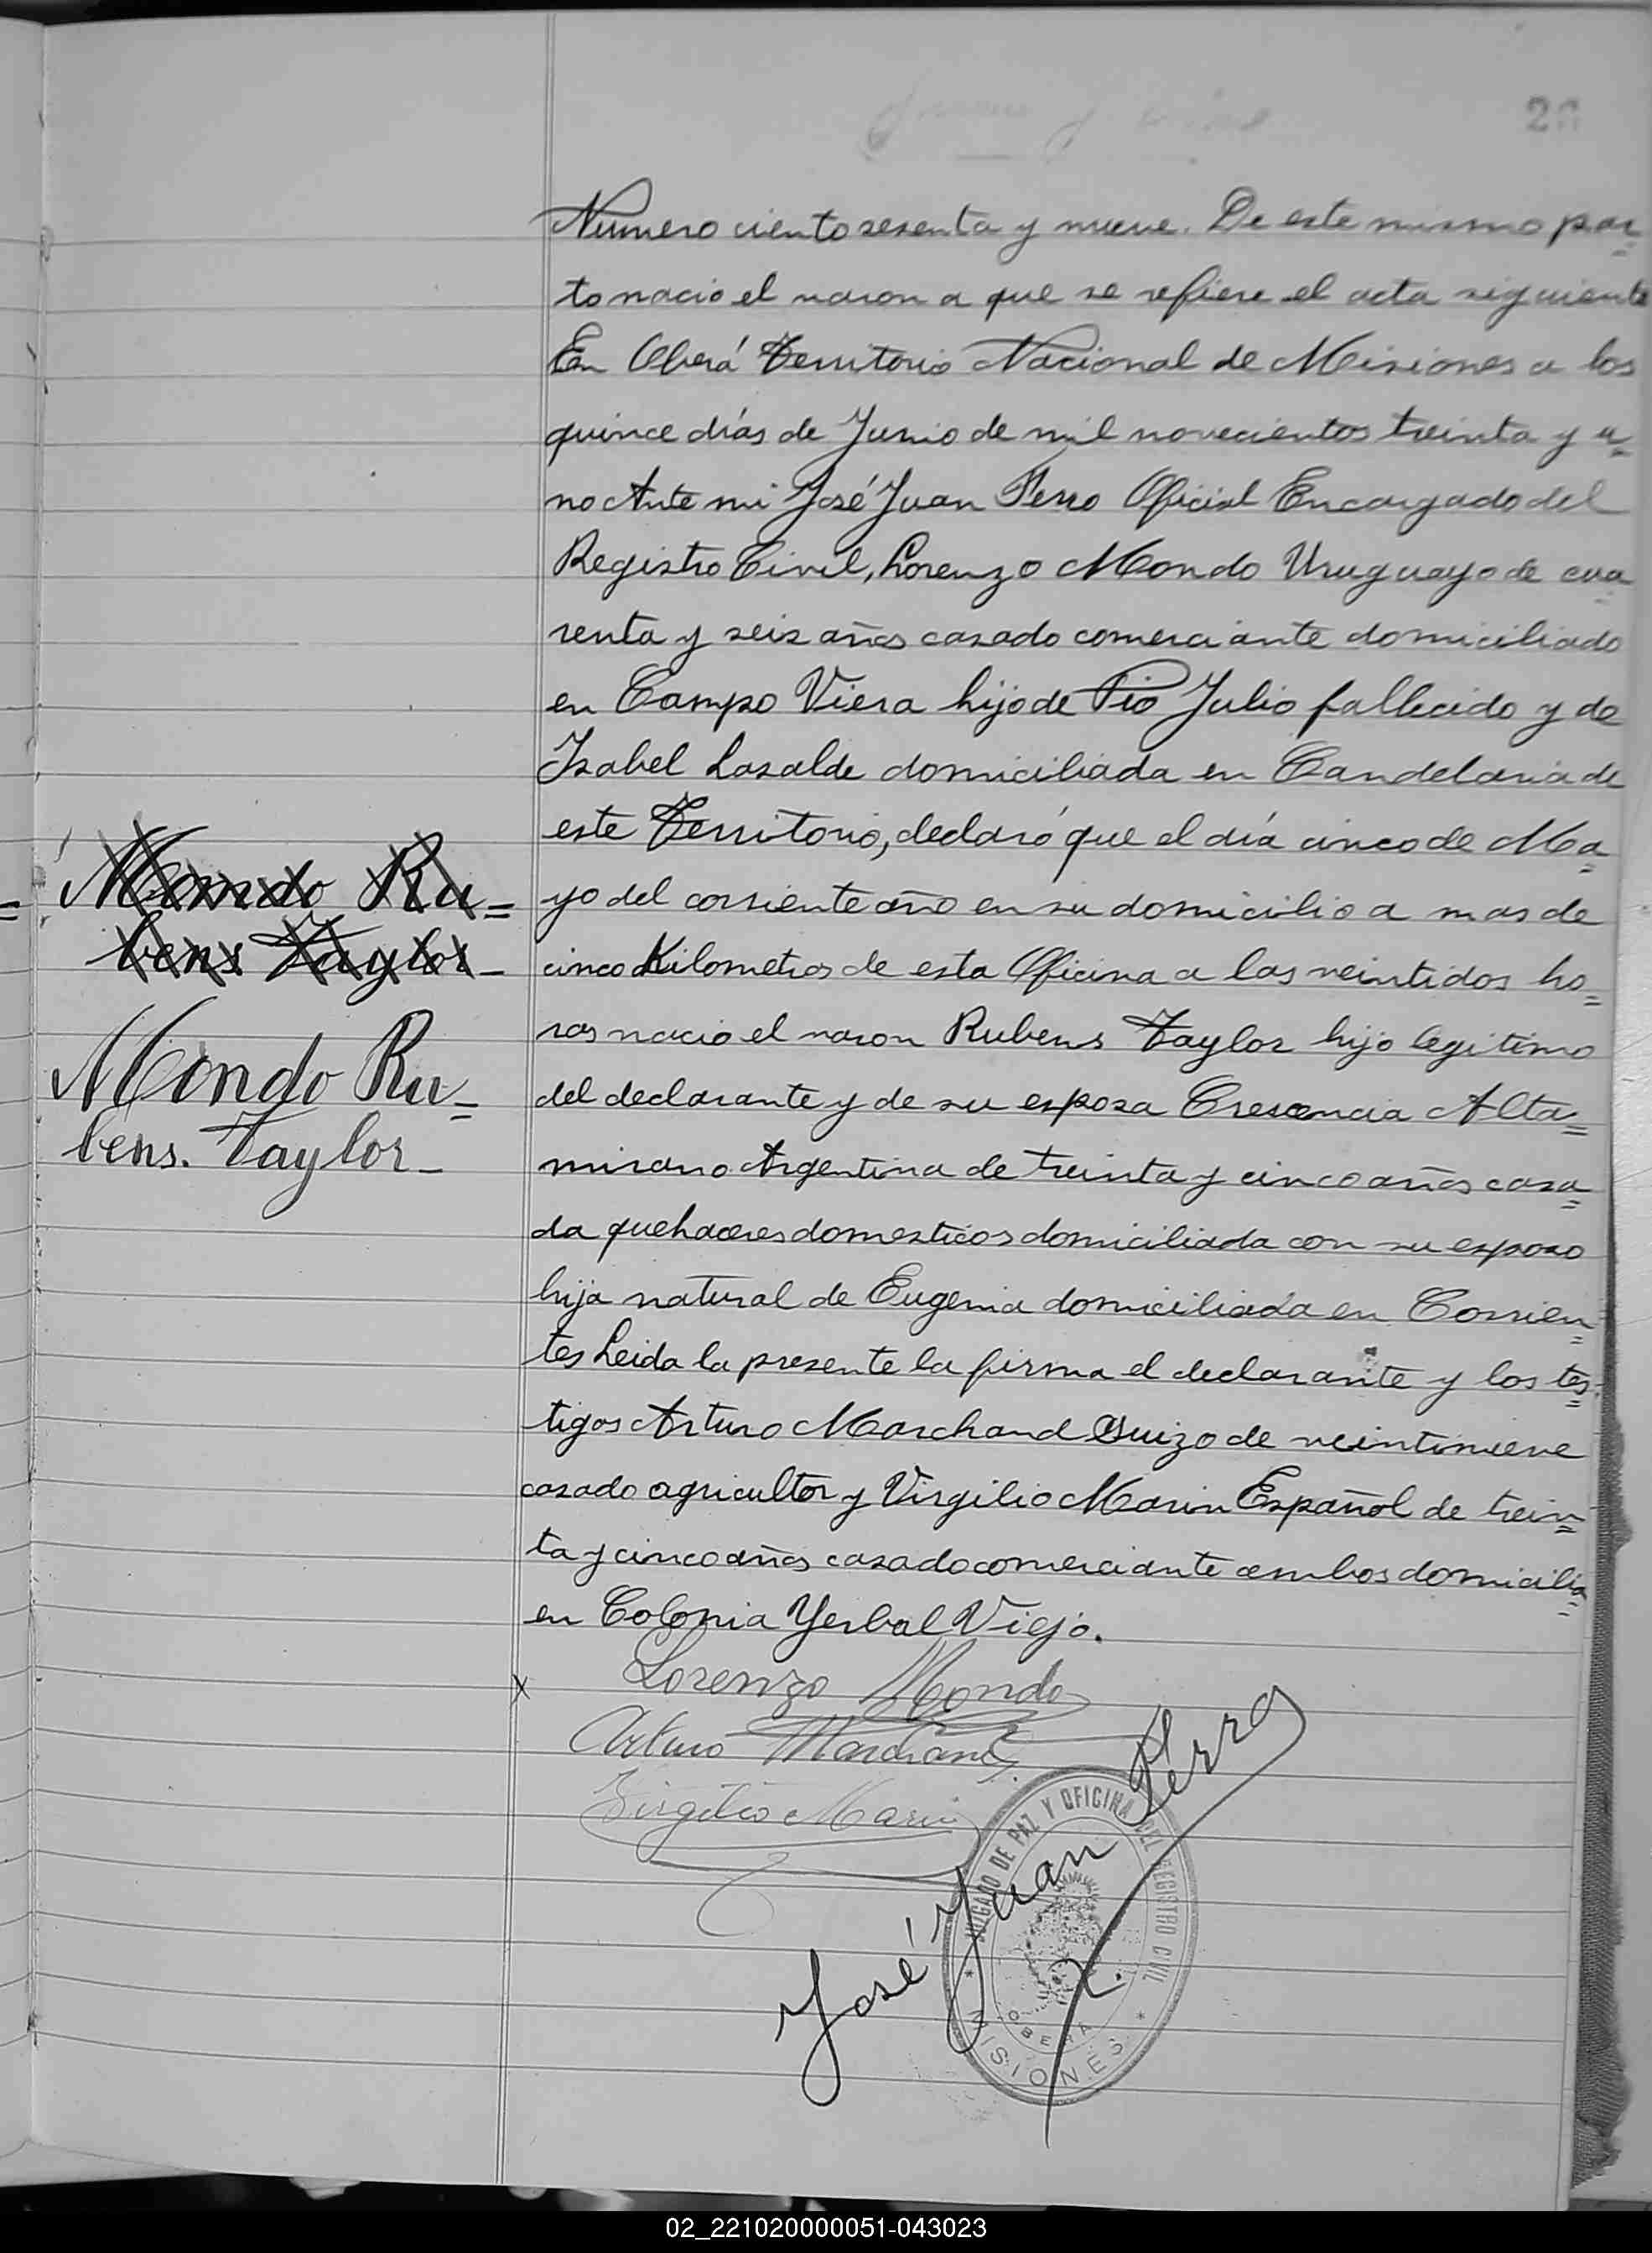 Numero ciento sesenta y nueve. De este mismo par=
to nacio el varon a que se refiere el acta siguiente
En Oberá Territorio Nacional de Misiones a los
quince días de Junio de mil novecientos treinta y u=
no Ante mi José Juan Ferro Oficial Encargado del
Registro Civil, Lorenzo Mondo Uruguayo de cua=
renta y seis años casado comerciante domiciliado
en Campo Viera hijo de Pio Julio fallecido y de
Isabel Lasalde domiciliada en Candelaria de
este Territorio, declaró que el día cinco de Ma=
yo del corriente año en su domicilio a mas de
cinco Kilometros de esta Oficina a las veintidos ho=
ras nacio el varon Rubens Taylor hijo legitimo
del declarante y de su esposa Crescencia Alta=
mirano Argentina de treinta y cinco años casa=
da quehaceres domesticos domiciliada con su esposo
hija natural de Eugenia domiciliada en Corrien=
tes Leida la presente la firma el declarante y los tes=
tigos Arturo Marchand Suizo de veintinueve
casado agricultor y Virgilio Marin Español de trein=
ta y cinco años casado comerciante ambos domicilia=
en Colonia Yerbal Viejo.
Mondo Ru=
bens Taylor-
Mondo Ru=
bens. Taylor-
x Lorenzo Mondo
Arturo Marchand
Virgilio Marin
José Juan Ferro
JUZGADO DE PAZ Y OFICINA DEL REGISTRO CIVIL
OBERA
* MISIONES *
02_221020000051-043023